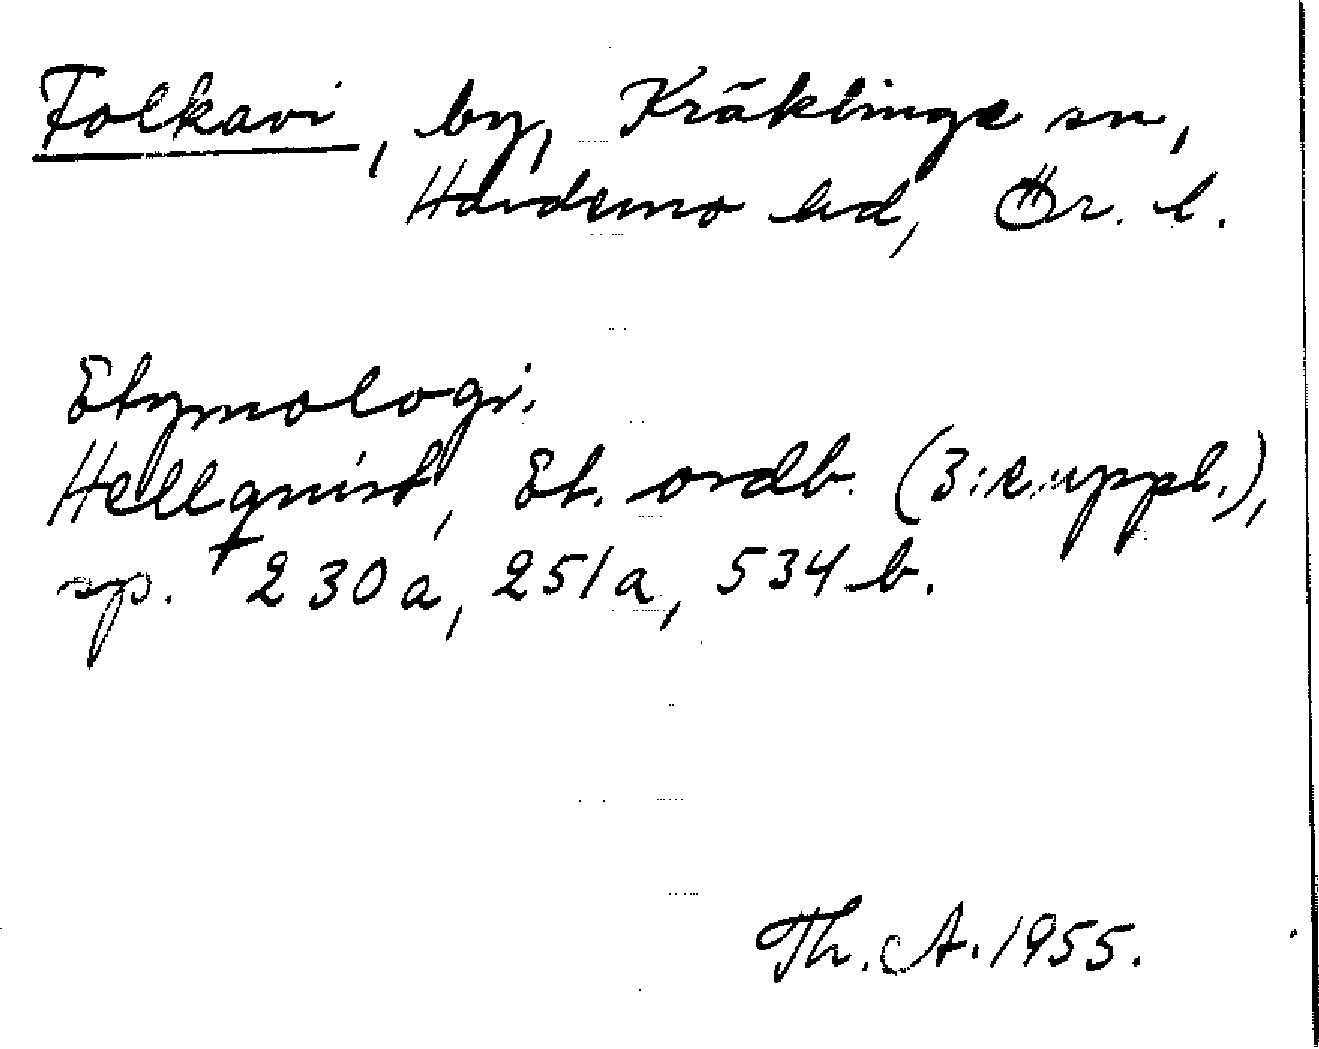 Folkavi, by, Kräklinge sn,
Hardemo hd, Ör. l.
Etymologi.
Hellquist, Et. ordb. (3:e uppl.),
sp. 230a, 251a, 534b.
Th. A. 1955.